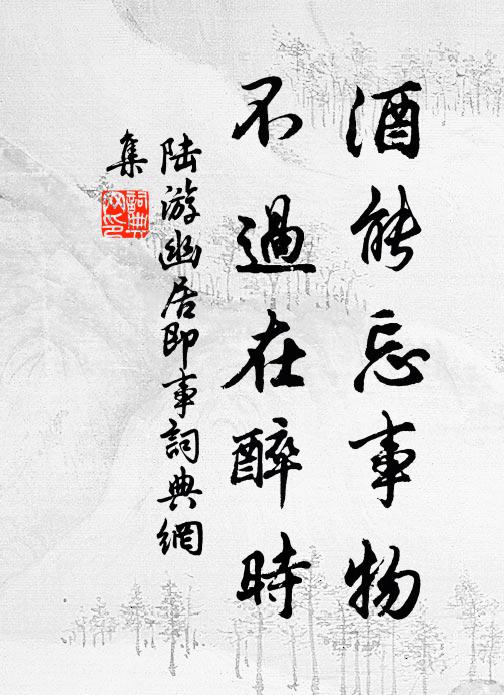 酒能忘事物
不過在醉時
陸游幽居即事詞典網
集
詞典
网印